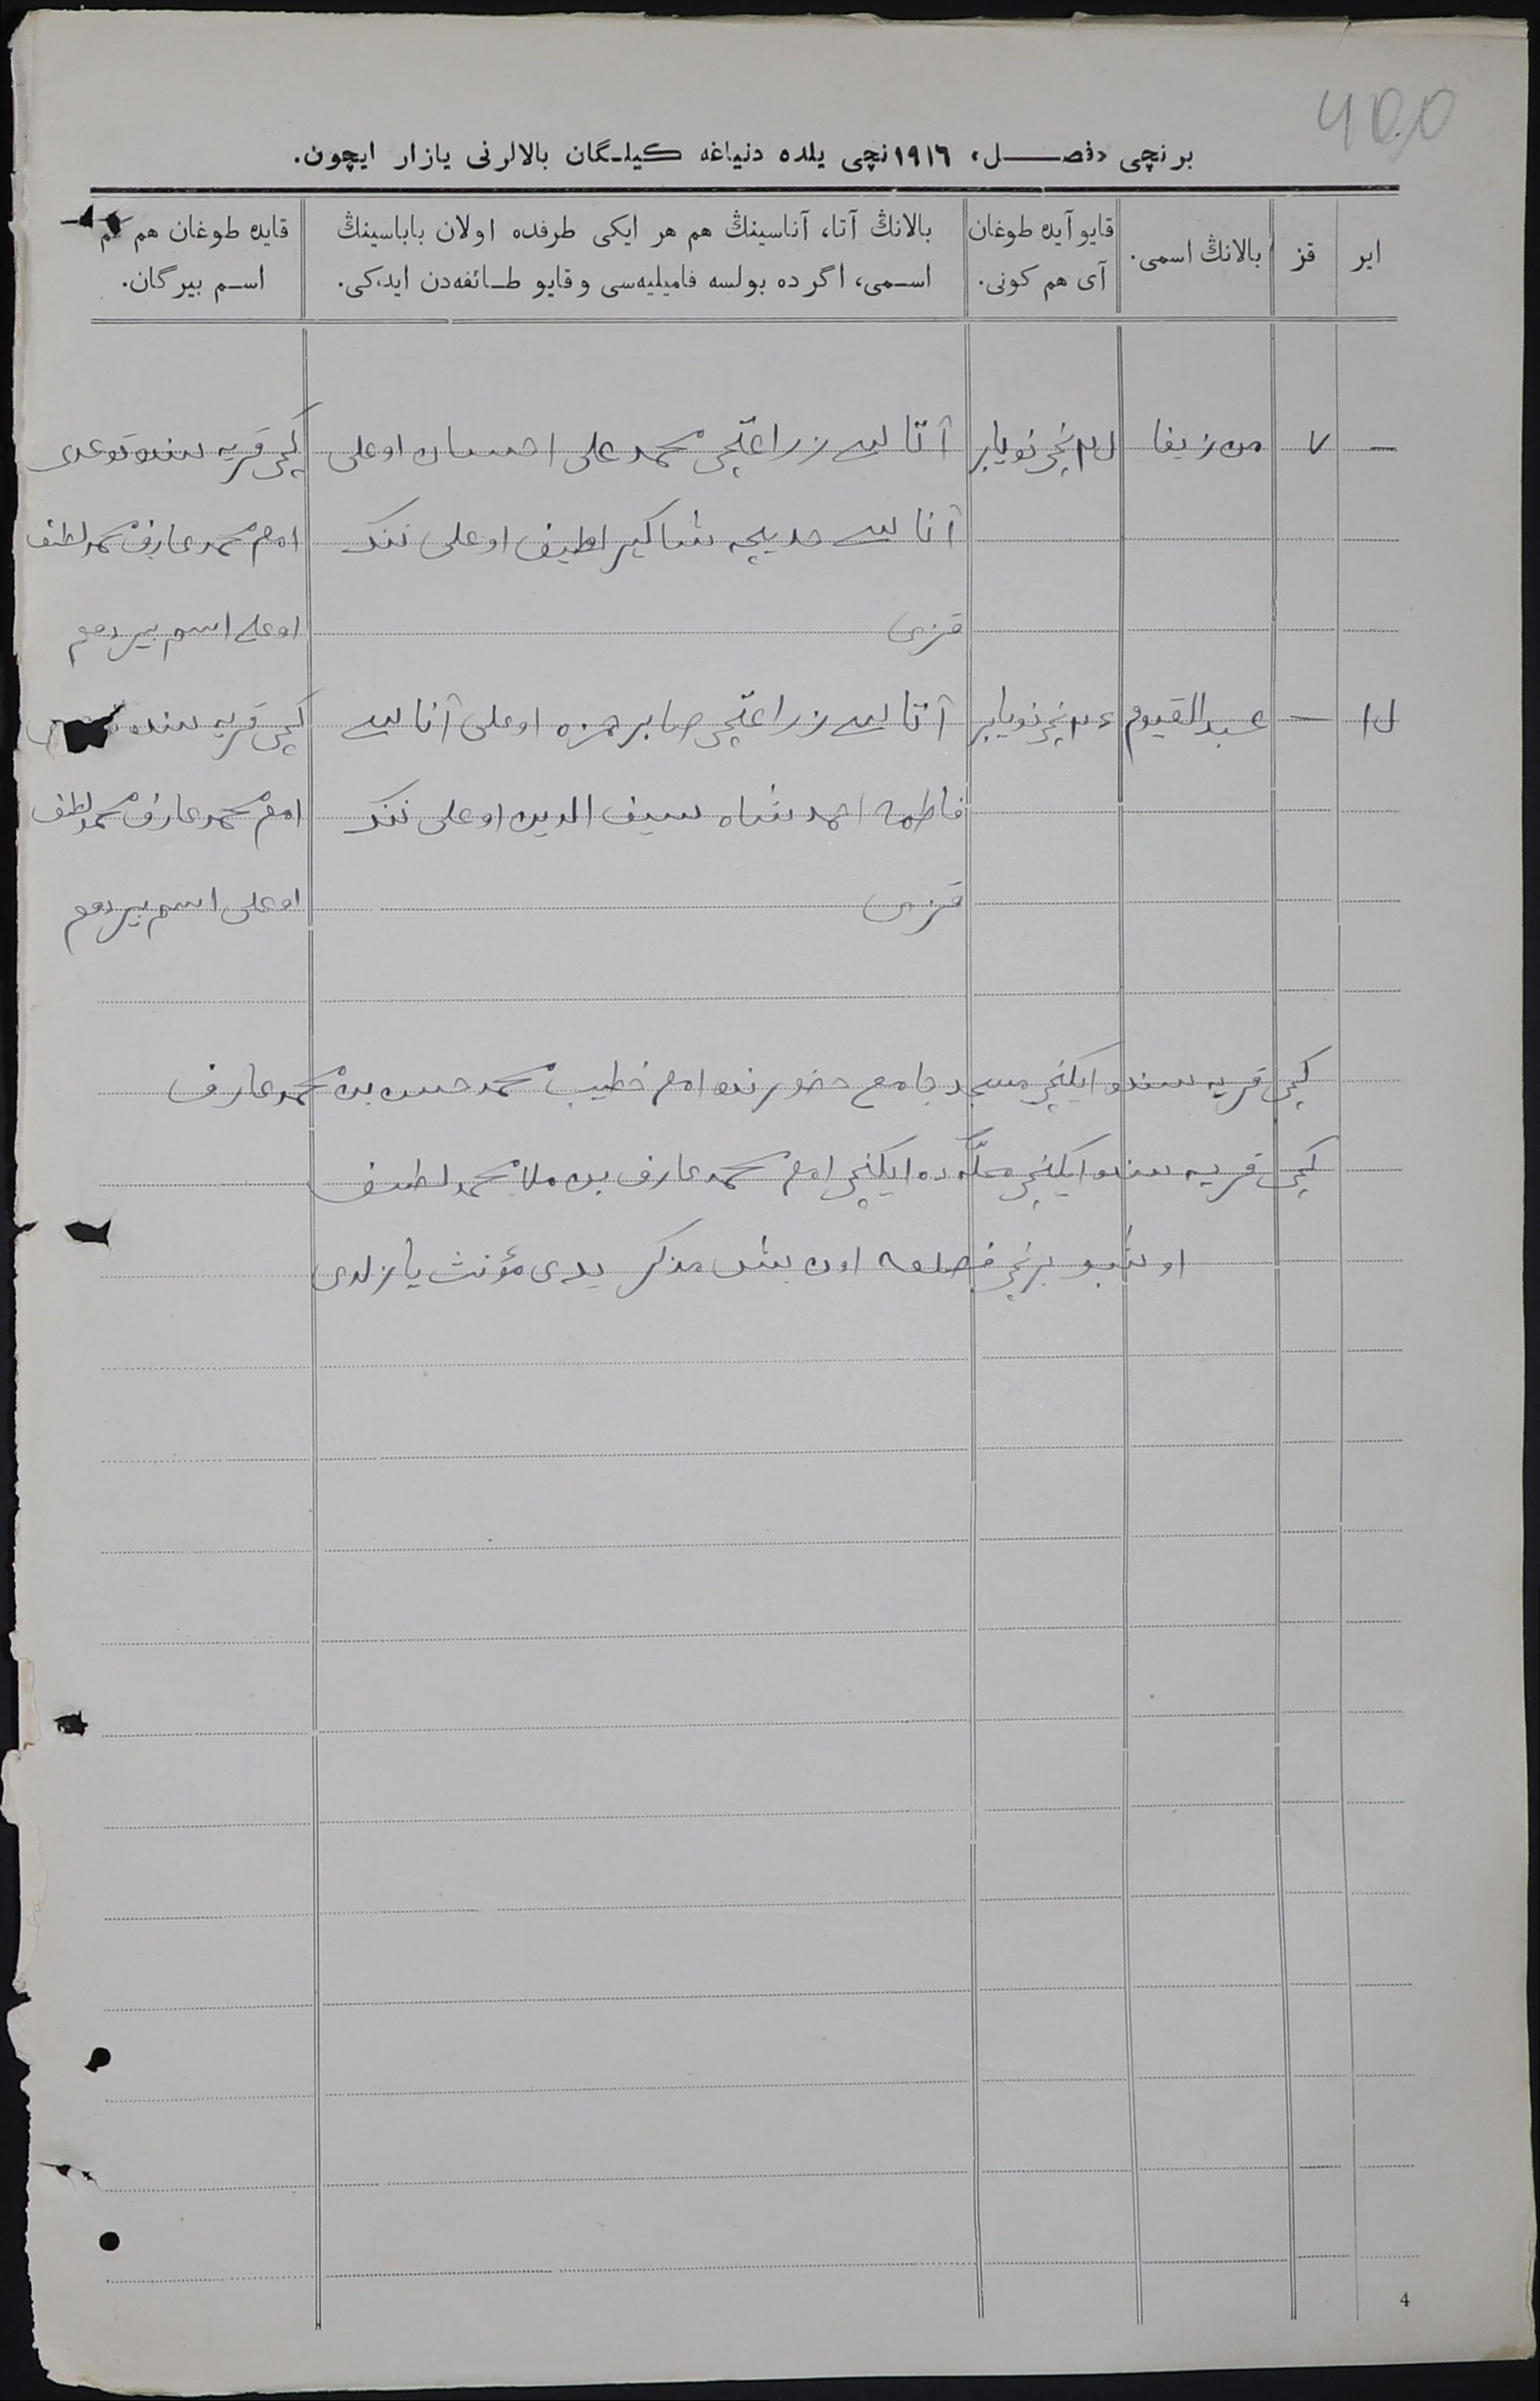 400
برنچی «فصل» ١٩١٦نچی یلده دنیاغه کیلگان بالالرنی یازار ایچون.
ایر
قز
بالانڭ اسمی.
قایو آیده طوغان آی هم کونی.
بالانڭ آتا، آناسینڭ هم هر ایکی طرفده اولان باباسینڭ
اسمی، اگرده بولسه فامیلیه‌سی و قایو طائفه‌دن ایدکی.
قایده طوغان هم کم
اسم بیرگان.
— ٧ نچی نویابر آتاسی زراعتچی محمد علی احسان اوغلی کچی قریه سنده توغدی
آناسی خدیچه شاکیر لطیف اوغلی ننک امام محمد عارف محمد لطیف
قزی اوغلی اسم بیردم
١٥ — عبد القیوم نچی نویابر آتاسی زراعتچی صابر حمزه اوغلی آناسی کچی قریه سنده
فاطمه احمد شاه سیف الدین اوغلی ننک امام محمد عارف محمد لطیف
قزی اوغلی اسم بیردم
کچی قریه سنده ایکنچی مسجد جامع حضورنده امام خطیب محمد حسن بن محمد عارف
کچی قریه سنده ایکنچی محلّه ده ایکنچی امام محمد عارف بن ملا محمد لطیف
اوشبو برنچی فصلغه اون بش مذکر یدی مؤنث یازلدی
4